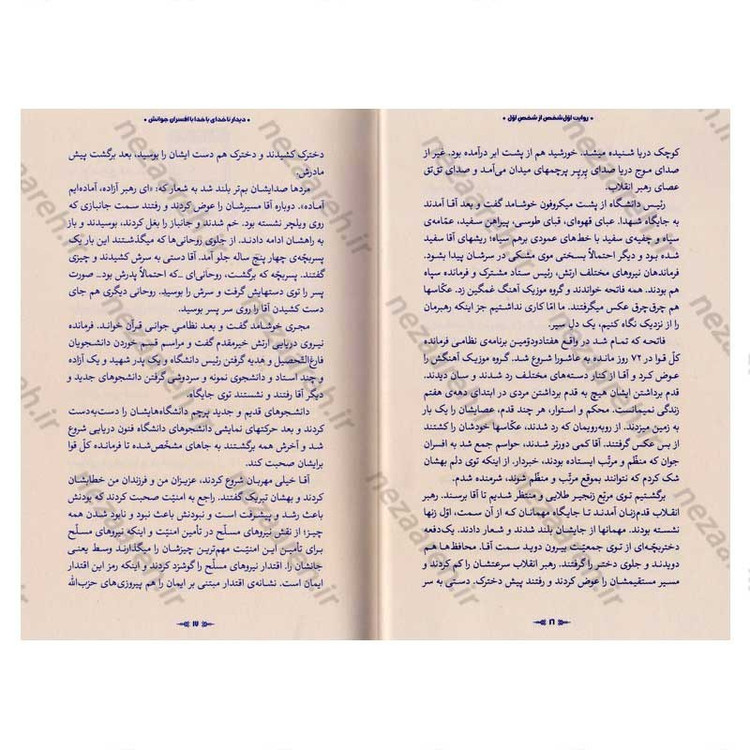 • روایت اوّل‌شخص از شخص اوّل •
کوچک دریا شنیده میشد. خورشید هم از پشت ابر درآمده بود. غیر از
صدای موج دریا صدای پرپر پرچمهای میدان می‌آمد و صدای تق‌تق
عصای رهبر انقلاب.
رئیس دانشگاه از پشت میکروفون خوشامد گفت و بعد آقا آمدند
به جایگاه شهدا. عبای قهوه‌ای، قبای طوسی، پیراهن سفید، عمّامه‌ی
سیاه و چفیه‌ی سفید با خط‌های عمودی برهم سیاه؛ ریشهای آقا سفید
شده بود و دیگر احتمالاً بسختی موی مشکی در سرشان پیدا بشود.
فرماندهان نیروهای مختلف ارتش، رئیس ستاد مشترک و فرمانده سپاه
هم بودند. همه فاتحه خواندند و گروه موزیک آهنگ غمگین زد. عکّاسها
هم چرق‌چرق عکس میگرفتند. ما امّا کاری نداشتیم جز اینکه رهبرمان
را از نزدیک نگاه کنیم، یک دل سیر.
فاتحه که تمام شد در واقع هفتادودوّمین برنامه‌ی نظامی فرمانده
کلّ قوا در ۷۲ روز مانده به عاشورا شروع شد. گروه موزیک آهنگش را
عوض کرد و آقا از کنار دسته‌های مختلف رد شدند و سان دیدند.
قدم برداشتن ایشان هیچ به قدم برداشتن مردی در ابتدای دهه‌ی هفتم
زندگی نمیمانست. محکم و استوار، هر چند قدم، عصایشان را یک بار
به زمین میزدند. از روبه‌رویمان که رد شدند، عکّاسها خودشان را کشتند
از بس عکس گرفتند. آقا کمی دورتر شدند، حواسم جمع شد به افسران
جوان که منظّم و مرتّب ایستاده بودند، خبردار. از اینکه توی دلم بهشان
شک کردم که نتوانند بموقع مرتّب و منظّم شوند، شرمنده شدم.
برگشتیم توی مربّع زنجیر طلایی و منتظر شدیم تا آقا برسند. رهبر
انقلاب قدم‌زنان آمدند تا جایگاه مهمانان که از آن سمت، اوّل زنها
نشسته بودند. مهمانها از جایشان بلند شدند و شعار دادند. یک‌دفعه
دختربچّه‌ای از توی جمعیّت بیرون دوید سمت آقا. محافظ‌ها هم
دویدند و جلوی دختر را گرفتند. رهبر انقلاب سرعتشان را کم کردند و
مسیر مستقیمشان را عوض کردند و رفتند پیش دخترک. دستی به سر
۱۶
• دیدار ناخدای باخدا با افسران جوانش •
دخترک کشیدند و دخترک هم دست ایشان را بوسید، بعد برگشت پیش
مادرش.
مردها صدایشان بم‌تر بلند شد به شعار که: «ای رهبر آزاده، آماده‌ایم
آماده». دوباره آقا مسیرشان را عوض کردند و رفتند سمت جانبازی که
روی ویلچر نشسته بود. خم شدند و جانباز را بغل کردند، بوسیدند و باز
به راهشان ادامه دادند. از جلوی روحانی‌ها که میگذشتند این بار یک
پسربچّه‌ی چهار پنج ساله جلو آمد. آقا دستی به سرش کشیدند و چیزی
گفتند. پسربچّه که برگشت، روحانی‌ای ـ که احتمالاً پدرش بود ـ صورت
پسر را توی دستهایش گرفت و سرش را بوسید. روحانی دیگری هم جای
دست کشیدن آقا را روی سر پسر بوسید.
مجری خوشامد گفت و بعد نظامی جوانی قرآن خواند. فرمانده
نیروی دریایی ارتش خیرمقدم گفت و مراسم قسم خوردن دانشجویان
فارغ‌التّحصیل و هدیه گرفتن رئیس دانشگاه و یک پدر شهید و یک آزاده
و چند استاد و دانشجوی نمونه و سردوشی گرفتن دانشجوهای جدید و
دیگر آقا رفتند و نشستند توی جایگاه.
دانشجوهای قدیم و جدید پرچم دانشگاه‌هایشان را دست‌به‌دست
کردند و بعد حرکتهای نمایشی دانشجوهای دانشگاه فنون دریایی شروع
شد و آخرش همه برگشتند به جاهای مشخّص‌شده تا فرمانده کلّ قوا
برایشان صحبت کند.
آقا خیلی مهربان شروع کردند، عزیزان من و فرزندان من خطابشان
کردند و بهشان تبریک گفتند. راجع به امنیّت صحبت کردند که بودنش
باعث رشد و پیشرفت است و نبودنش باعث نبود و نابود شدن همه
چیز؛ از نقش نیروهای مسلّح در تأمین امنیّت و اینکه نیروهای مسلّح
برای تأمین این امنیّت مهم‌ترین چیزشان را میگذارند وسط یعنی
جانشان را. اقتدار نیروهای مسلّح را گوشزد کردند و اینکه رمز این اقتدار
ایمان است. نشانه‌ی اقتدار مبتنی بر ایمان را هم پیروزی‌های حزب‌الله
۱۷
nezaareh.ir